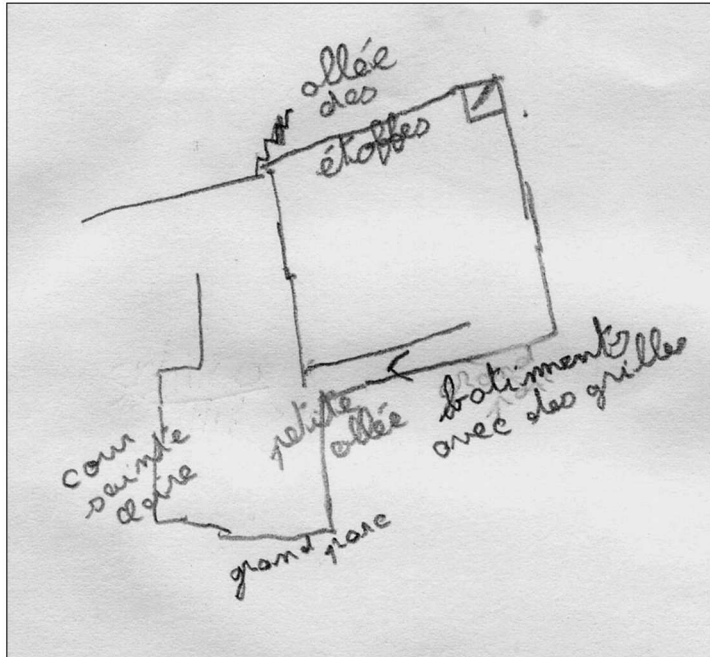 allée
des
étoffes
batiments
avec des grilles
petite
allée
cour
sainte
claire
grand parc